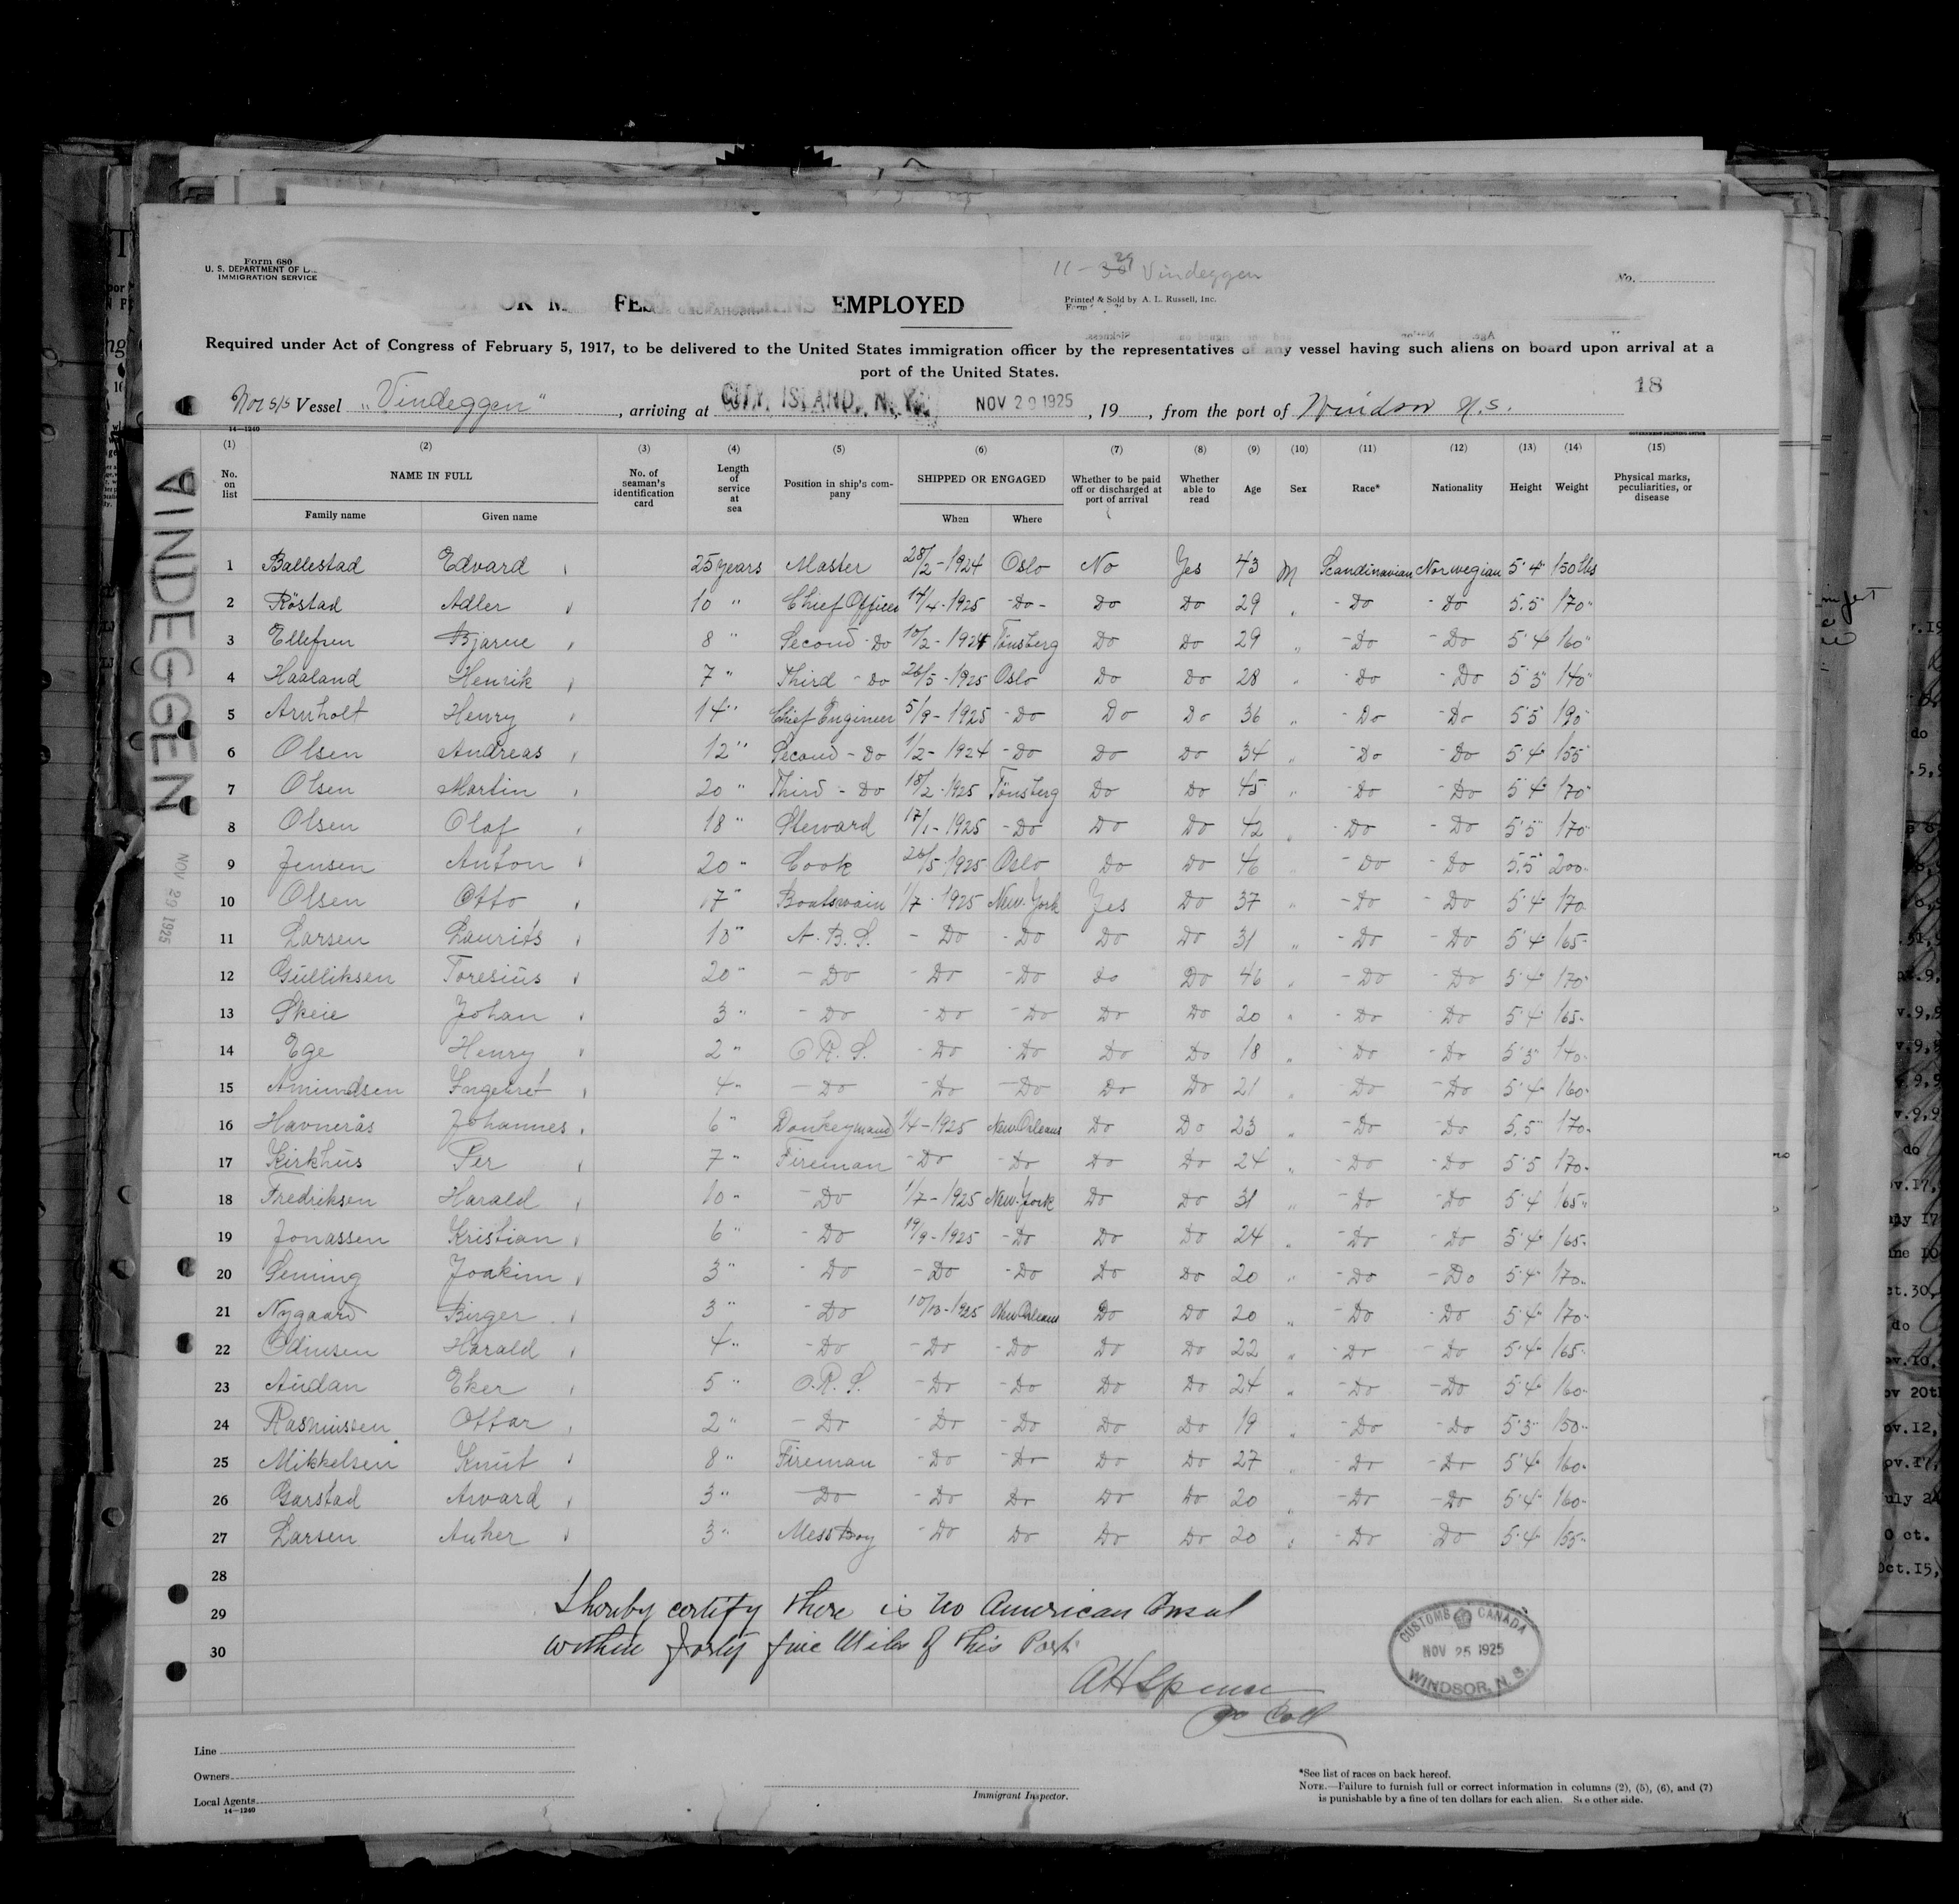 Form 680
U. S. DEPARTMENT OF
IMMIGRATION SERVICE
11 – 29 Vindeggen
No.
OR M FES ALIENS EMPLOYED
Printed & Sold by A. L. Russell, Inc.
Required under Act of Congress of February 5, 1917, to be delivered to the United States immigration officer by the representatives of any vessel having such aliens on board upon arrival at a
port of the United States.
18
Nor s/s Vessel "Vindeggen", arriving at CITY ISLAND, N.Y. NOV 29 1925, 19 , from the port of Windsor N.S.
14—1240
(1) (2) (3) (4) (5) (6) (7) (8) (9) (10) (11) (12) (13) (14) (15)
No. on list NAME IN FULL Family name Given name No. of seaman's identification card Length of service at sea Position in ship's company SHIPPED OR ENGAGED When Where Whether to be paid off or discharged at port of arrival Whether able to read Age Sex Race* Nationality Height Weight Physical marks, peculiarities, or disease
1 Ballestad Edvard 25 years Master 28/2 - 1924 Oslo No Yes 43 M Scandinavian Norwegian 5'4" 150 lbs
2 Röstad Adler 10 " Chief Officer 14/4 - 1925 - Do - Do Do 29 " - Do - Do 5.5" 170"
3 Ellefsen Bjarne 8 " Second - Do 10/2 - 1924 Tönsberg Do Do 29 " - Do - Do 5'4 160"
4 Haaland Henrik 7 " Third - Do 26/5 - 1925 Oslo Do Do 28 " - Do - Do 5'3" 140"
5 Arnholt Henry 14 " Chief Engineer 5/9 - 1925 - Do Do Do 36 " - Do - Do 5'5 190"
6 Olsen Andreas 12 " Second - Do 1/2 - 1924 - Do Do Do 34 " - Do - Do 5'4" 155"
7 Olsen Martin 20 " Third - Do 18/2 - 1925 Tönsberg Do Do 45 " - Do - Do 5'4" 170"
8 Olsen Olaf 18 " Steward 17/1 - 1925 - Do Do Do 42 " - Do - Do 5'5" 170"
9 Jensen Anton 20 " Cook 26/5 - 1925 Oslo Do Do 46 - Do - Do 5.5" 200"
10 Olsen Otto 17 " Boatswain 1/7 - 1925 New York Yes Do 37 " - Do - Do 5'4" 170
11 Larsen Laurits 13 " A. B. S. - Do - Do Do Do 31 " - Do - Do 5'4" 165"
12 Gulliksen Toresius 20 " - Do - Do - Do Do Do 46 " - Do - Do 5'4" 170"
13 Skeie Johan 3 " - Do - Do - Do Do Do 20 " - Do - Do 5'4" 165"
14 Ege Henry 2 " O. R. S. - Do - Do Do Do 18 " - Do - Do 5'3" 140"
15 Amundsen Ingebret 4 " - Do - Do - Do Do Do 21 " - Do - Do 5'4" 160"
16 Havnerås Johannes 6 " Donkeymand 1/4 - 1925 New Orleans Do Do 23 " - Do - Do 5.5" 170"
17 Kirkhus Per 7 " Fireman - Do - Do Do Do 24 " - Do - Do 5'5 170"
18 Fredriksen Harald 10 " - Do 1/7 - 1925 New York Do Do 31 " - Do - Do 5'4 165"
19 Jonassen Kristian 6 " - Do 19/9 - 1925 - Do Do Do 24 " - Do - Do 5'4" 165"
20 Joakim 3 " - Do - Do - Do Do Do 20 " - Do - Do 5'4 170"
21 Nygaard Birger 3 " - Do 1925 New Orleans Do Do 20 " - Do - Do 5'4" 170"
22 Odinsen Harald 4 " - Do - Do - Do Do Do 22 " - Do - Do 5'4" 165"
23 Audan Eker 5 " O. R. S. - Do - Do Do Do 24 " - Do - Do 5'4" 160"
24 Rasmussen Ottar 2 " - Do - Do - Do Do Do 19 " - Do - Do 5'3" 150"
25 Mikkelsen Knut 8 " Fireman - Do - Do Do Do 27 " - Do - Do 5'4" 160"
26 Garstad Award 3 " - Do - Do Do Do Do 20 " - Do - Do 5'4" 160"
27 Larsen Anker 3 " Mess Boy - Do Do Do Do 20 " - Do Do 5'4" 155"
28
29
30
I hereby certify there is no American Consul
within forty five Miles of this Port
A H Spence
Coll
CUSTOMS CANADA
NOV 25 1925
WINDSOR, N. S.
VINDEGGEN
NOV 29 1925
Line
Owners
Local Agents
14—1240
Immigrant Inspector.
*See list of races on back hereof.
NOTE.—Failure to furnish full or correct information in columns (2), (5), (6), and (7)
is punishable by a fine of ten dollars for each alien. See other side.